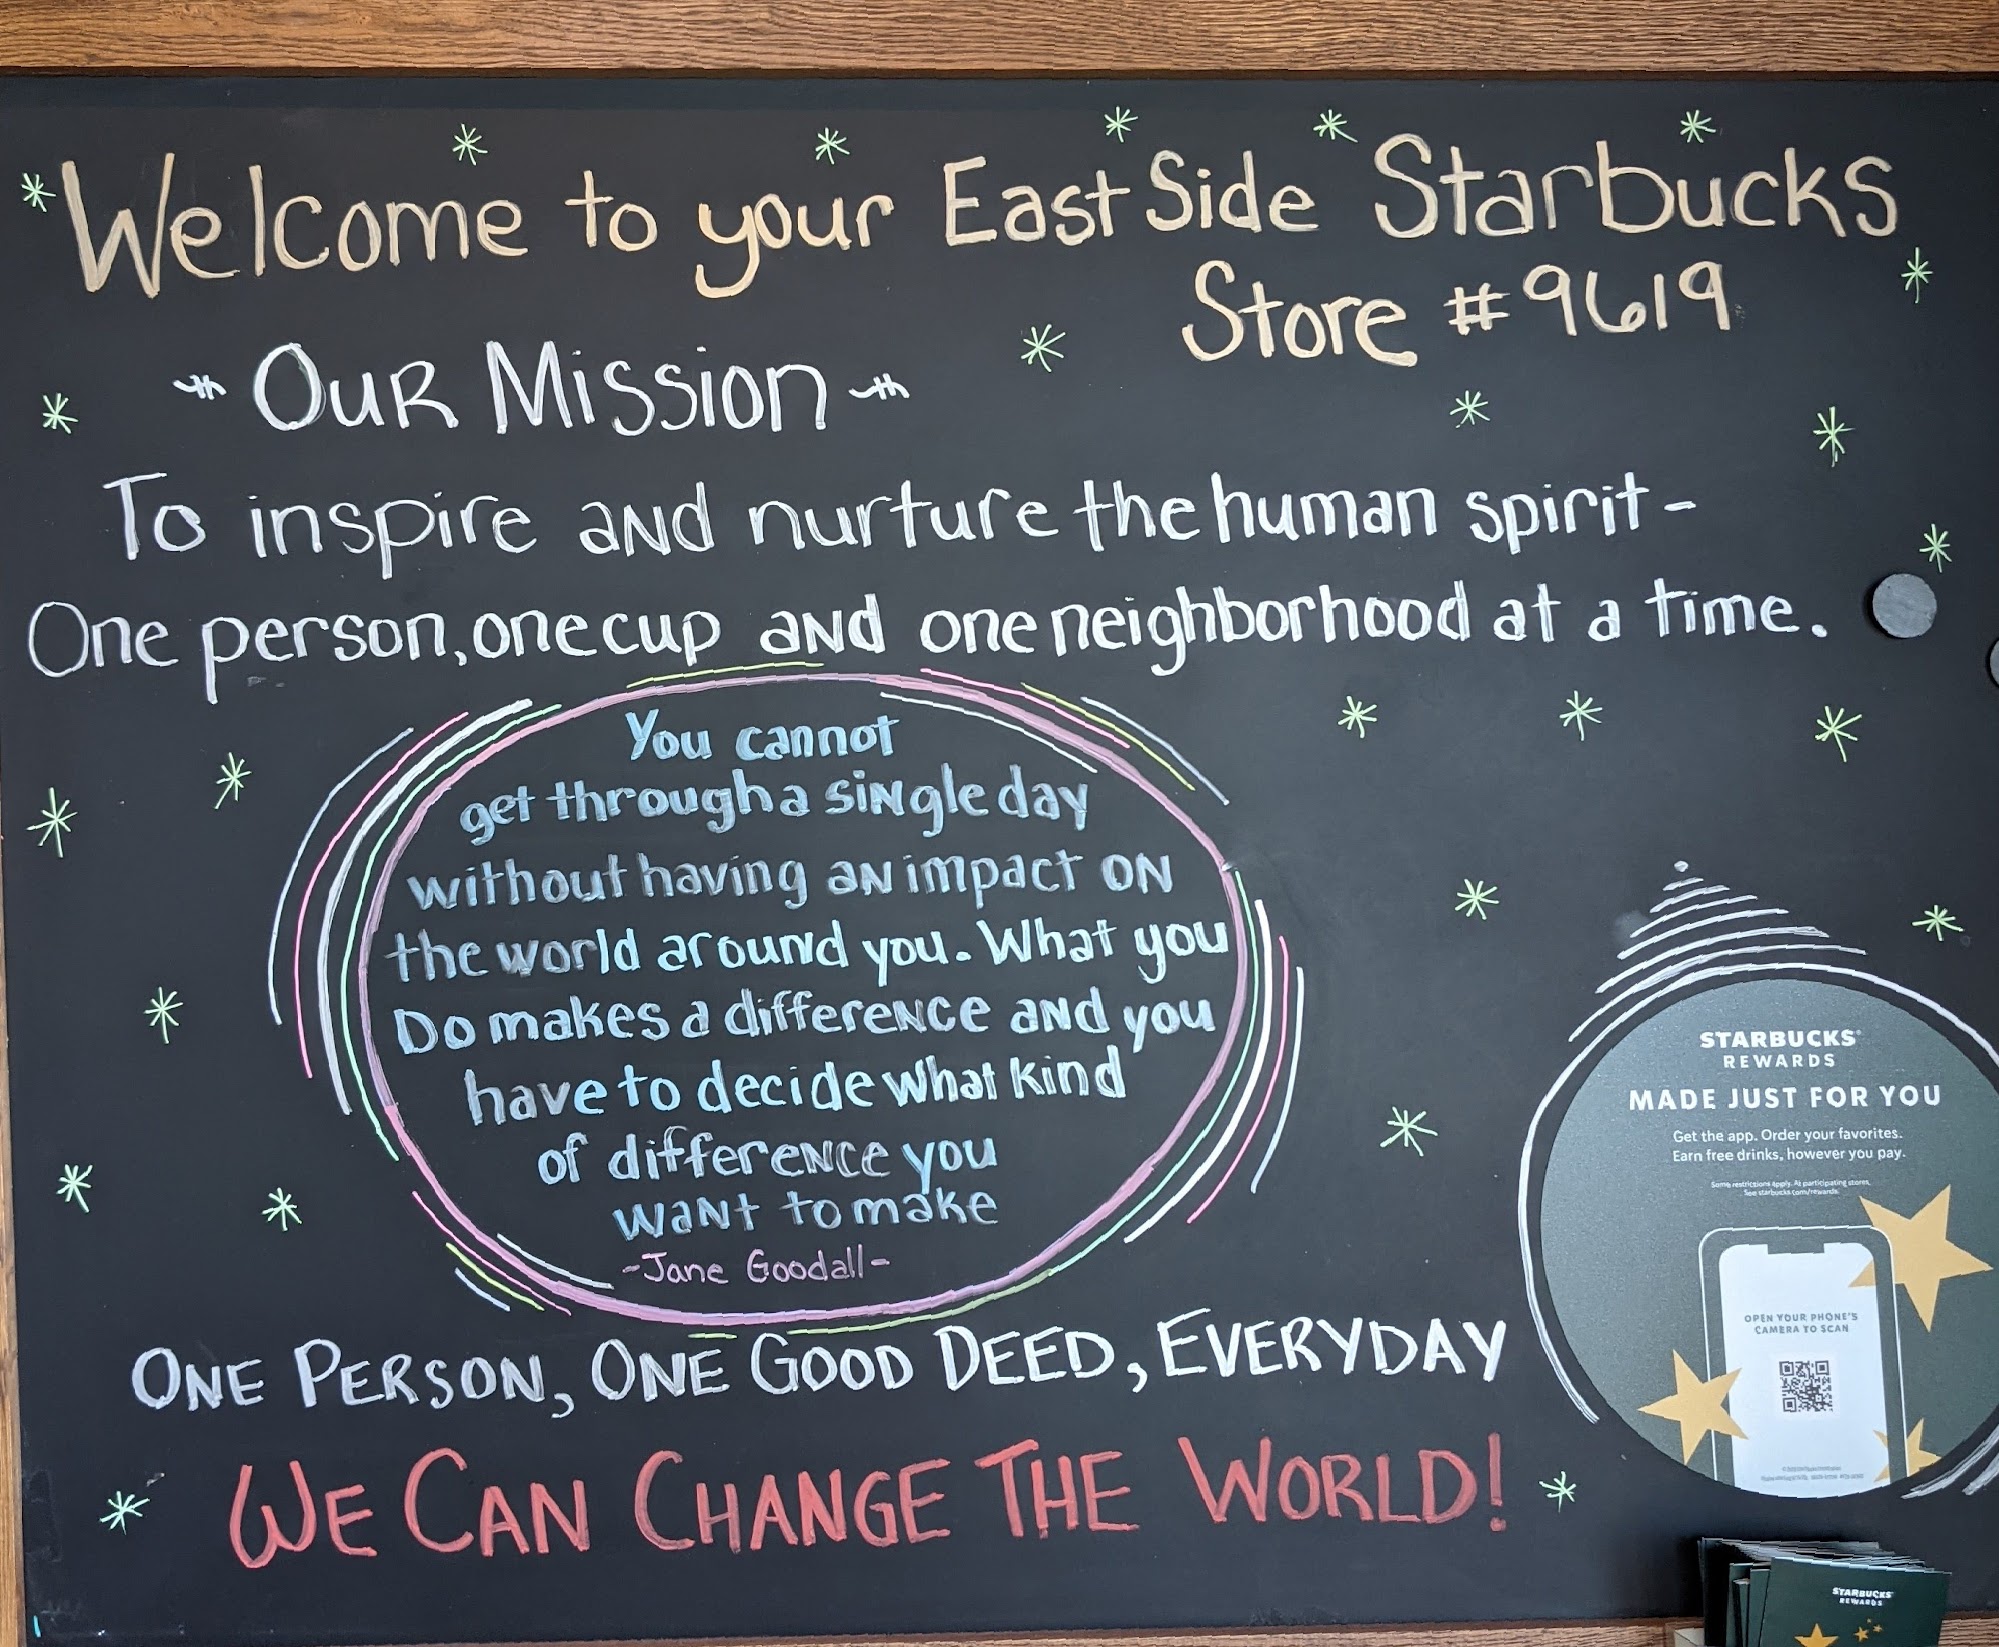 Welcome to your East Side Starbucks
Store #9619
Our Mission
To inspire and nurture the human spirit-
One person, one cup and one neighborhood at a time.
You cannot
get through a single day
without having an impact on
the world around you. What you
Do makes a difference and you
have to decide what kind
of difference you
want to make
-Jane Goodall-
One Person, One Good Deed, Everyday
We Can Change The World!
STARBUCKS®
REWARDS
MADE JUST FOR YOU
Get the app. Order your favorites.
Earn free drinks, however you pay.
Some restrictions apply. At participating stores.
See starbucks.com/rewards.
OPEN YOUR PHONE'S
CAMERA TO SCAN
STARBUCKS
REWARDS